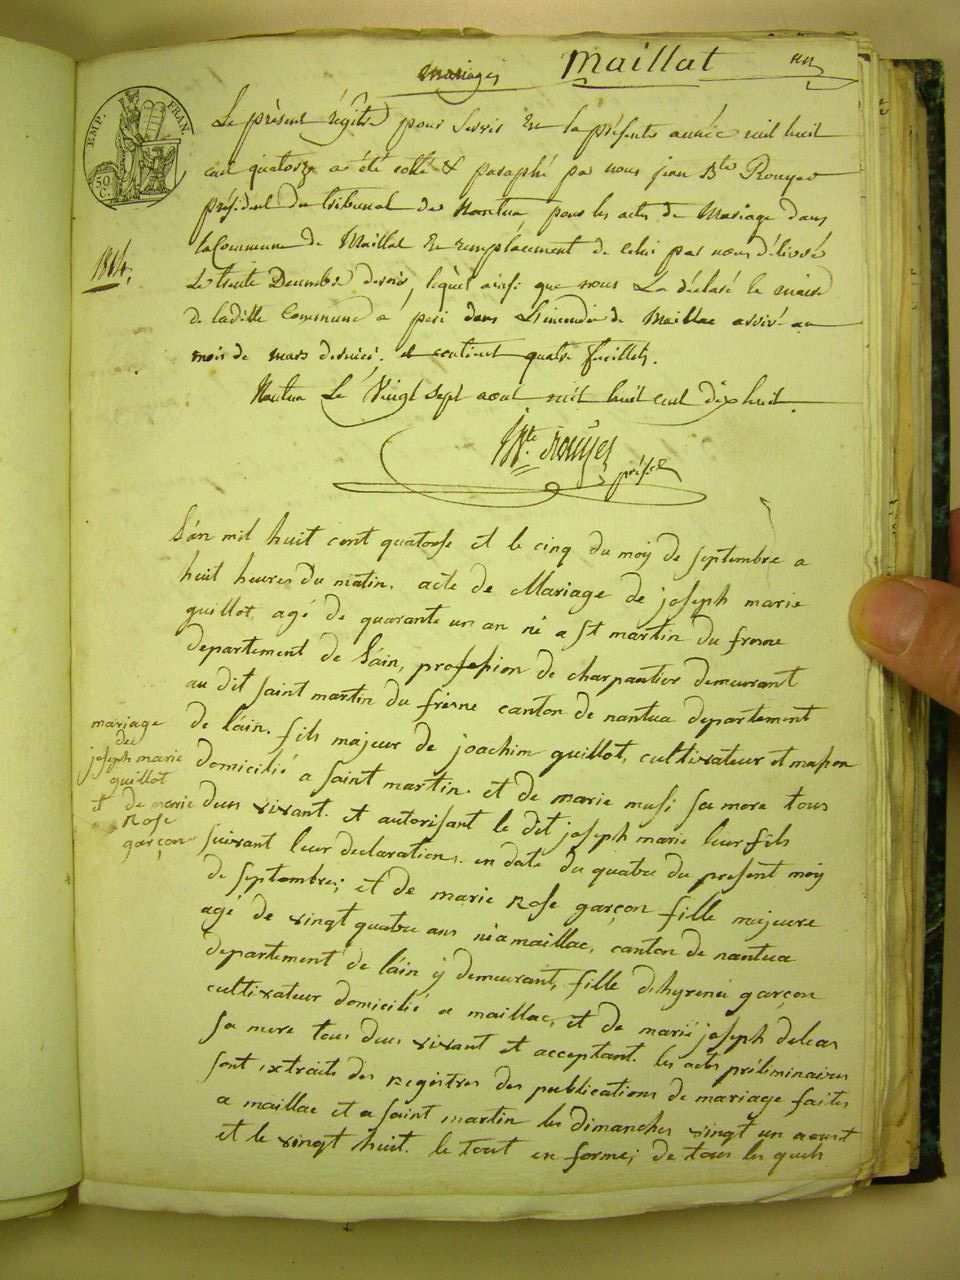 mariages Maillat
EMP. FRAN.
50 C.
Le présent régître pour servir en la présente année mil huit
cent quatorze a été cotté & paraphé par nous jean Bte Rouyer
président du tribunal de Nantua, pour les actes de Mariage dans
la Commune de Maillat en remplacement de celui par nous délivré
1814.
Le trente Decembre dernier, lequel ainsi que nous L'a déclaré le maire
de laditte Commune a péri dans L'incendie de Maillac arrivé au
mois de mars dernier. et contient quatre feuillets.
Nantua Le Vingt sept aout mil huit cent dix huit.
Bte. Rouyer
présid
L'an mil huit cent quatorse et le cinq du moy de septembre a
huit heures du matin. acte de Mariage de joseph marie
guillot, agé de quarante un an né a st martin du fresne
departement de L'ain, profession de charpantier demeurant
au dit saint martin du frêsne canton de nantua departement
de l'ain. fils majeur de joachim guillot, cultivateur et masson
domicilié a saint martin. et de marie musi sa mere tous
deus vivant. et autorisant le dit joseph marie leur fils
suivant leur declaration. en date du quatre du present moy
de septembre; et de marie Rose garçon fille majeure
agé de vingt quatre ans né a maillac, canton de nantua
departement de l'ain y demeurant, fille d'hyrené garçon
cultivateur domicilié a maillac, et de marie joseph delcas
sa mere tous deus vivant et acceptant. les acts préliminaires
sont extraits des registres des publications de mariage faites
a maillac et a saint martin les dimanches vingt un aoust
et le vingt huit. le tout en forme; de tous les quels
mariage
de
joseph marie
guillot
et de marie
Rose
garçon